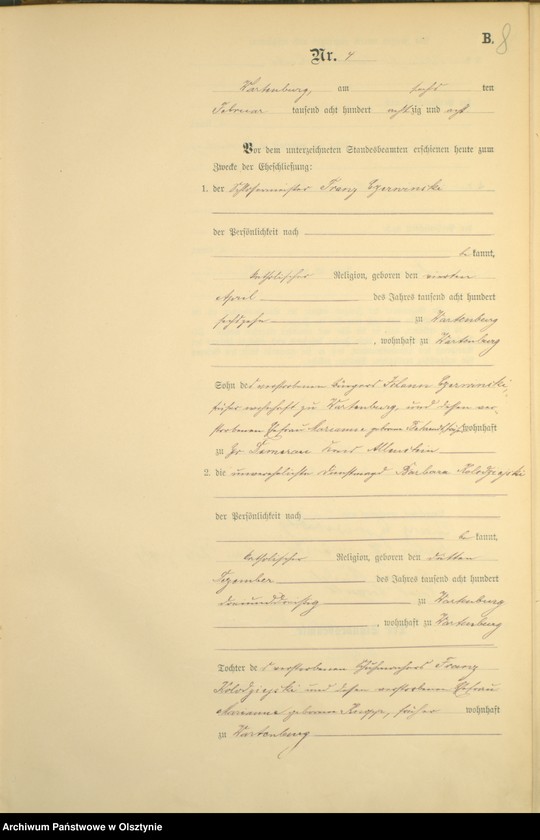 B. 8
Nr. 4
Wartenburg, am sechs ten
Februar tausend acht hundert achtzig und acht
Vor dem unterzeichneten Standesbeamten erschienen heute zum
Zwecke der Eheschließung:
1. der Schlossermeister Franz Czerwinski
der Persönlichkeit nach
be kannt,
katholischer Religion, geboren den vierten
April des Jahres tausend acht hundert
sechszehn zu Wartenburg
, wohnhaft zu Wartenburg
Sohn des verstorbenen Bürgers Johann
früher wohnhaft zu Wartenburg, und dessen ver-
storbenen Ehefrau Marianne geborne wohnhaft
zu Gr. Lemerau Kreis Allenstein
2. die unverehelichte Dienstmagd Barbara Kolodziejski
der Persönlichkeit nach
be kannt,
katholischer Religion, geboren den dritten
Dezember des Jahres tausend acht hundert
dreiunddreißig zu Wartenburg
, wohnhaft zu Wartenburg
Tochter des verstorbenen Schuhmachers Franz
Kolodziejski und dessen verstorbene Ehefrau
Marianne geborene früher wohnhaft
zu Wartenburg
Archiwum Państwowe w Olsztynie